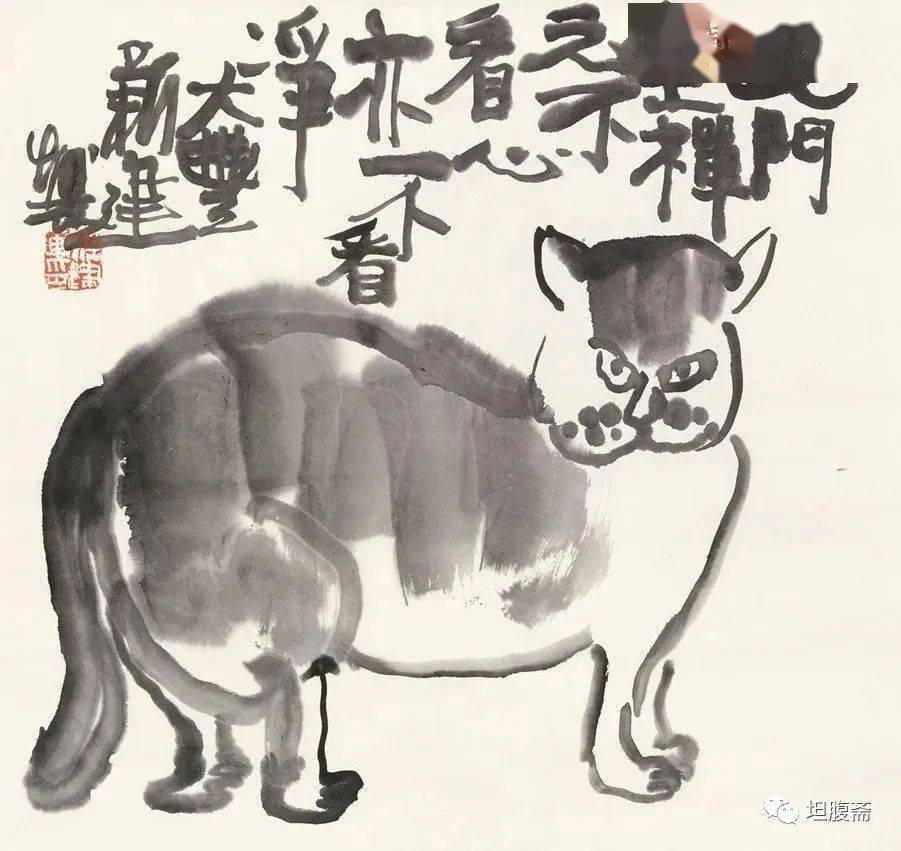 門
禪
元不
看心
亦不看
淨
大豐
新建
坦腹斋